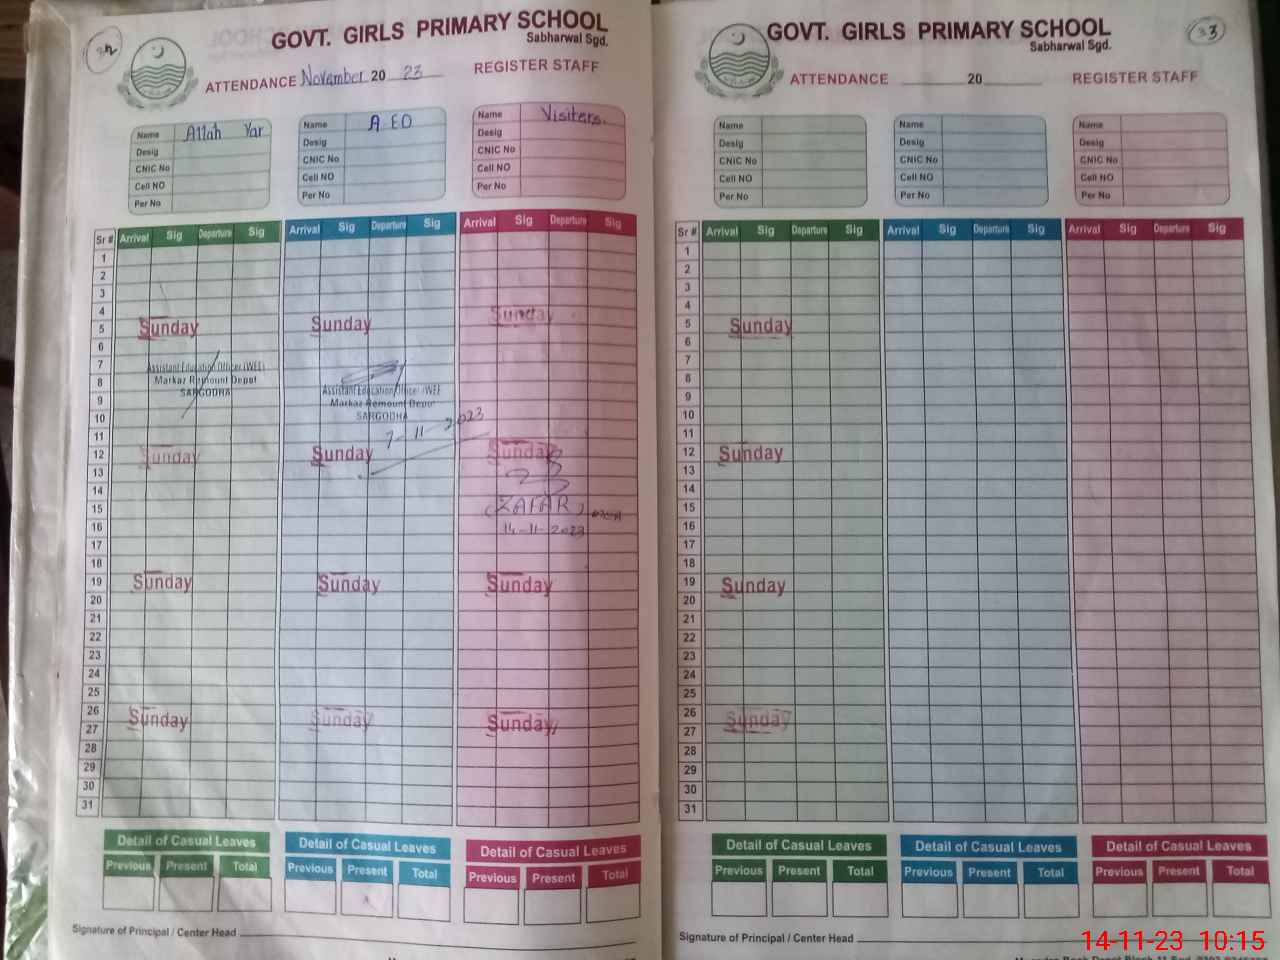 32
GOVT. GIRLS PRIMARY SCHOOL
Sabharwal Sgd.
ATTENDANCE November 20 23 REGISTER STAFF
Name Allah Yar
Desig
CNIC No
Cell NO
Per No
Name A.EO
Desig
CNIC No
Cell NO
Per No
Name Visiters.
Desig
CNIC No
Cell NO
Per No
Sr # Arrival Sig Departure Sig Arrival Sig Departure Sig Arrival Sig Departure Sig
1
2
3
4
5 Sunday Sunday Sunday
6
7 Assistant Education Officer (WEE)
8 Markaz Remount Depot Assistant Education Officer (WEE
9 SARGODHA Markaz Remount Depot
10 SARGODHA
11 7-11-2023
12 Sunday Sunday Sunday
13
14
15 (ZAFAR)
16 14-11-2023
17
18
19 Sunday Sunday Sunday
20
21
22
23
24
25
26 Sunday Sunday Sunday
27
28
29
30
31
Detail of Casual Leaves Detail of Casual Leaves Detail of Casual Leaves
Previous Present Total Previous Present Total Previous Present Total
Signature of Principal / Center Head
33
GOVT. GIRLS PRIMARY SCHOOL
Sabharwal Sgd.
ATTENDANCE 20 REGISTER STAFF
Name
Desig
CNIC No
Cell NO
Per No
Name
Desig
CNIC No
Cell NO
Per No
Name
Desig
CNIC No
Cell NO
Per No
Sr # Arrival Sig Departure Sig Arrival Sig Departure Sig Arrival Sig Departure Sig
1
2
3
4
5 Sunday
6
7
8
9
10
11
12 Sunday
13
14
15
16
17
18
19 Sunday
20
21
22
23
24
25
26 Sunday
27
28
29
30
31
Detail of Casual Leaves Detail of Casual Leaves Detail of Casual Leaves
Previous Present Total Previous Present Total Previous Present Total
Signature of Principal / Center Head
14-11-23 10:15